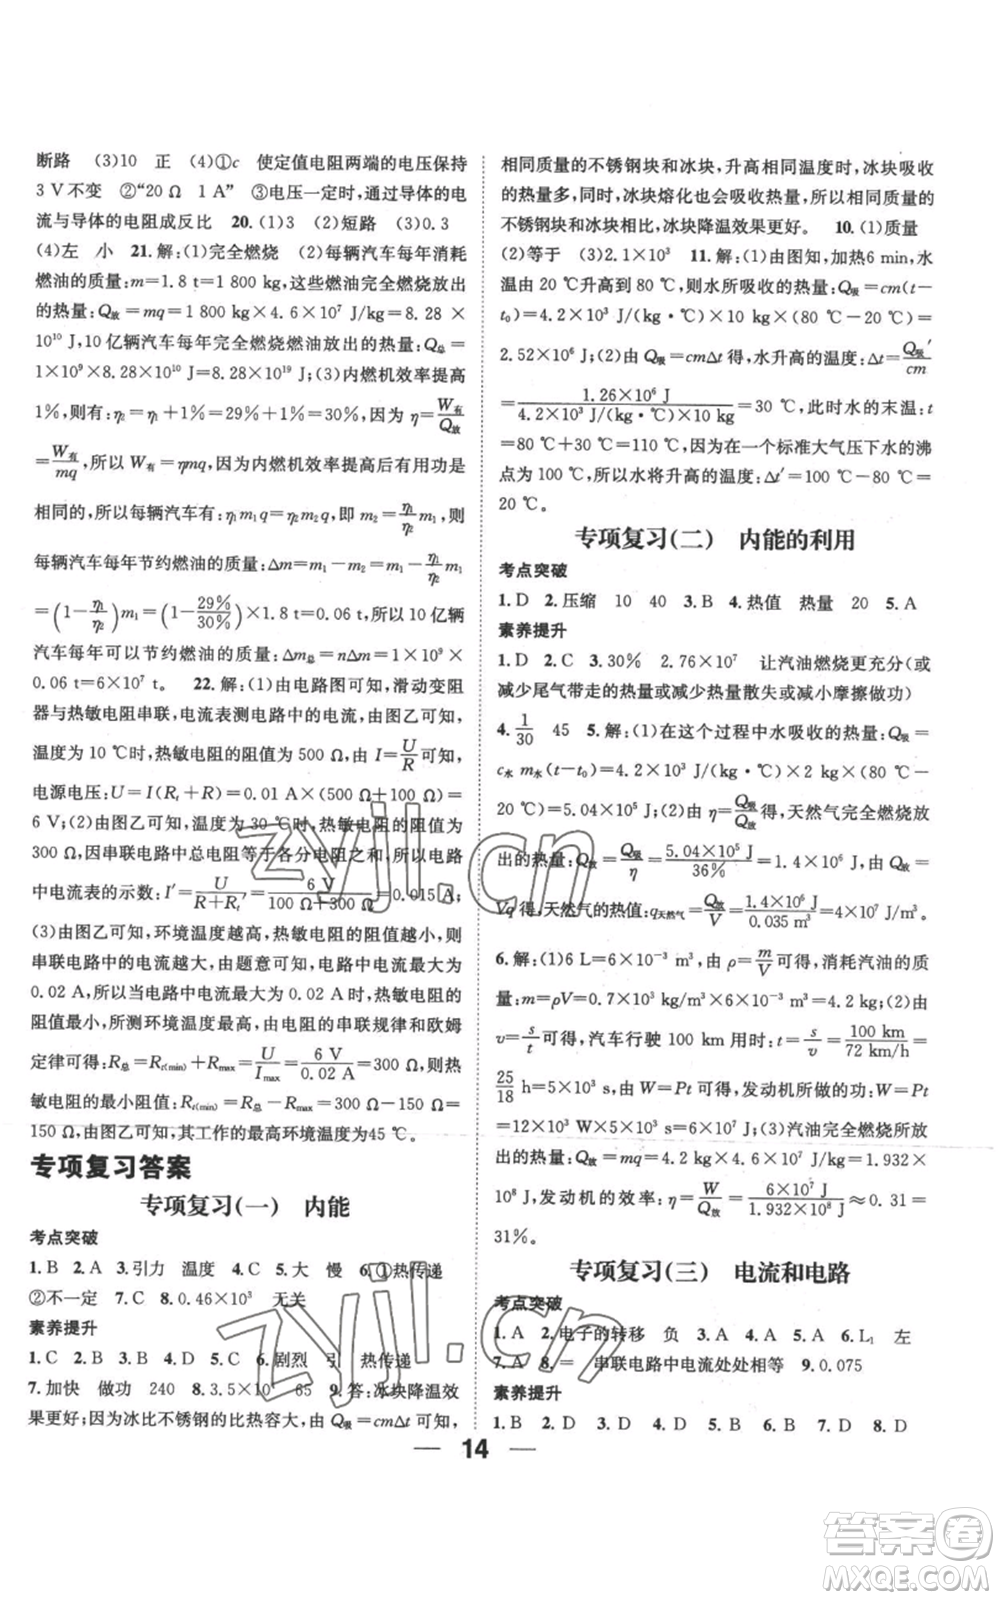 断路　(3)10　正　(4)①c　使定值电阻两端的电压保持
3 V不变　②“20 Ω　1 A”　③电压一定时,通过导体的电
流与导体的电阻成反比　20. (1)3　(2)短路　(3)0.3
(4)左　小　21. 解:(1)完全燃烧　(2)每辆汽车每年消耗
燃油的质量:m=1.8 t=1 800 kg,这些燃油完全燃烧放
出的热量:Q放=mq=1 800 kg×4.6×10⁷ J/kg=8.28 ×
10¹⁰ J,10 亿辆汽车每年完全燃烧燃油放出的热量:Q总=
1×10⁹×8.28×10¹⁰ J=8.28×10¹⁹ J;(3)内燃机效率提高
1%,则有:η₂=η₁+1%=29%+1%=30%,因为 η=W有/Q放
=W有/mq,所以 W有=ηmq,因为内燃机提高效率前后有用功是
相同的,所以每辆汽车有:η₁m₁q=η₂m₂q,即 m₂=η₁/η₂m₁,则
每辆汽车每年节约燃油的质量:Δm=m₁-m₂=m₁-η₁/η₂m₁
=(1-η₁/η₂)m₁=(1-29%/30%)×1.8 t=0.06 t;10 亿辆
汽车每年可以节约燃油的质量:Δm总=nΔm=1×10⁹×
0.06 t=6×10⁷ t。　22. 解:(1)由电路图可知,滑动变阻
器与热敏电阻串联,电流表测电路中的电流,由图乙可知,
温度为 10 ℃时,热敏电阻的阻值为 500 Ω,由 I=U/R可得,
电源电压:U=I(Rt+R)=0.01 A×(500 Ω+100 Ω)=
6 V;(2)由图乙可知,温度为 30 ℃时,热敏电阻的阻值为
300 Ω,因串联电路中总电阻等于各分电阻之和,所以电路
中电流表的示数:I′=U/(R+Rt′)=6 V/(100 Ω+300 Ω)=0.015 A;
(3)由图乙可知,环境温度越高,热敏电阻的阻值越小,则
串联电路中的电流越大,由题意可知,电路中电流最大为
0.02 A,所以当电路中电流最大为 0.02 A时,热敏电阻的
阻值最小,所测环境温度最高,由电阻的串联规律和欧姆
定律可得:R总=Rt(min)+Rmax=U/Imax=6 V/0.02 A=300 Ω,则热
敏电阻的最小阻值:Rt(min)=R总-Rmax=300 Ω-150 Ω=
150 Ω,由图乙可知,其工作的最高环境温度为45 ℃。
专项复习答案
专项复习(一)　内能
考点突破
1. B　2. A　3. 引力　温度　4. C　5. 大　慢　6. ①热传递
②不一定　7. C　8. 0.46×10³　无关
素养提升
1. C　2. B　3. A　4. B　5. C　6. 剧烈　引　热传递
7. 加快　做功　240　8. 3.5×10⁵　65　9. 答:冰块降温效
果更好;因为冰比不锈钢的比热容大,由 Q吸=cmΔt 可知,
相同质量的不锈钢块和冰块,升高相同温度时,冰块吸收
的热量多,同时,冰块熔化也会吸收热量,所以,相同质量的
不锈钢块和冰块相比,冰块降温效果好。　10. (1)质量
(2)等于　(3)2.1×10³　11. 解:(1)由图知,加热6 min,水
温由 20 ℃升高到 80 ℃,则水所吸收的热量:Q吸=cm(t-
t₀)=4.2×10³ J/(kg·℃)×10 kg×(80 ℃-20 ℃)=
2.52×10⁶ J;(2)由 Q吸=cmΔt 得,水升高的温度:Δt=Q吸′/cm
=1.26×10⁶ J/(4.2×10³ J/(kg·℃)×10 kg)=30 ℃,此时水的末温:t
=80 ℃+30 ℃=110 ℃,因为在一个标准大气压下水的沸
点为 100 ℃,所以水将升高的温度:Δt′=100 ℃-80 ℃=
20 ℃。
专项复习(二)　内能的利用
考点突破
1. D　2. 压缩　10　40　3. B　4. 热值　热量　20　5. A
素养提升
1. D　2. C　3. 30%　2.76×10⁷　让汽油燃烧更充分(或
减少尾气带走的热量或减少热量散失或减小摩擦做功)
4. 1/30　45　5. 解:(1)在这个过程中水吸收的热量:Q吸=
c水 m水(t-t₀)=4.2×10³ J/(kg·℃)×2 kg×(80 ℃-
20 ℃)=5.04×10⁵ J;(2)由 η=Q吸/Q放得,天然气完全燃烧放
出的热量:Q放=Q吸/η=5.04×10⁵ J/36%=1.4×10⁶ J,由 Q放=
Vq 得,天然气的热值:q天然气=Q放/V=1.4×10⁶ J/0.035 m³=4×10⁷ J/m³。
6. 解:(1)6 L=6×10⁻³ m³,由 ρ=m/V可得,消耗汽油的质
量:m=ρV=0.7×10³ kg/m³×6×10⁻³ m³=4.2 kg;(2)由
v=s/t可得,汽车行驶 100 km 用时:t=s/v=100 km/72 km/h=
25/18 h=5×10³ s,由 W=Pt 可得,发动机所做的功:W=Pt
=12×10³ W×5×10³ s=6×10⁷ J;(3)汽油完全燃烧所放
出的热量:Q放=mq=4.2 kg×4.6×10⁷ J/kg=1.932×
10⁸ J,发动机的效率:η=W/Q放=6×10⁷ J/1.932×10⁸ J≈0.31=
31%。
专项复习(三)　电流和电路
考点突破
1. A　2. 电子的转移　负　3. A　4. A　5. A　6. L₁　左
7. A　8. =　串联电路中电流处处相等　9. 0.075
素养提升
1. B　2. D　3. B　4. B　5. B　6. D　7. D　8. D
14
zyjl.cn
zyjl.cn
答案圈
MXQE.COM